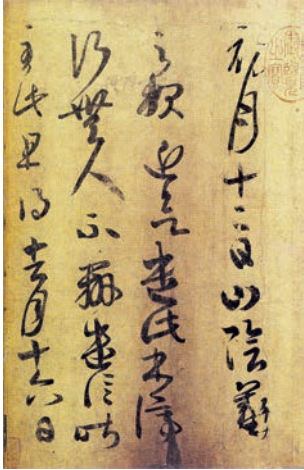 初月十二日山陰羲
之報近欲遣此書停
行無人不辦遣信昨
至此旦得去月十六日